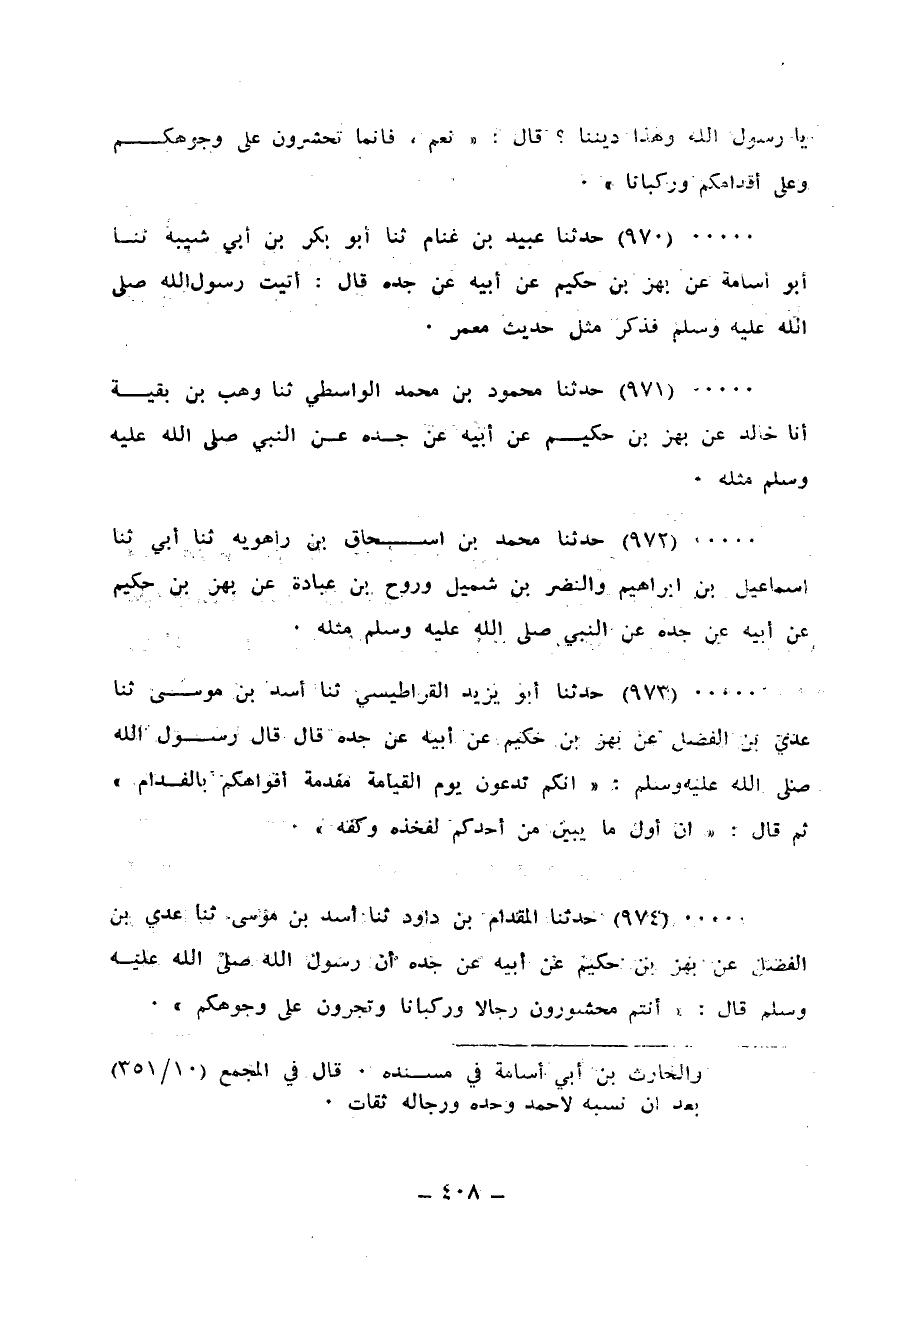 يا رسول الله وهذا ديننا ؟ قال : « نعم ، فانما تحشرون على وجوهكم
وعلى أقدامكم وركبانا » ٠
٠٠٠٠٠ (٩٧٠) حدثنا عبيد بن غنام ثنا أبو بكر بن أبي شيبة ثنا
أبو أسامة عن بهز بن حكيم عن أبيه عن جده قال : أتيت رسول الله صلى
الله عليه وسلم فذكر مثل حديث معمر ٠
٠٠٠٠٠ (٩٧١) حدثنا محمود بن محمد الواسطي ثنا وهب بن بقية
أنا خالد عن بهز بن حكيم عن أبيه عن جده عن النبي صلى الله عليه
وسلم مثله ٠
٠٠٠٠٠ (٩٧٢) حدثنا محمد بن اسحاق بن راهويه ثنا أبي ثنا
اسماعيل بن ابراهيم والنضر بن شميل وروح بن عبادة عن بهز بن حكيم
عن أبيه عن جده عن النبي صلى الله عليه وسلم مثله ٠
٠٠٠٠٠ (٩٧٣) حدثنا أبو يزيد القراطيسي ثنا أسد بن موسى ثنا
عدي بن الفضل عن بهز بن حكيم عن أبيه عن جده قال قال رسول الله
صلى الله عليه وسلم : « انكم تدعون يوم القيامة مفدمة أفواهكم بالفدام »
ثم قال : « ان أول ما يبين من أحدكم لفخذه وكفه » ٠
٠٠٠٠٠ (٩٧٤) حدثنا المقدام بن داود ثنا أسد بن موسى ثنا عدي بن
الفضل عن بهز بن حكيم عن أبيه عن جده أن رسول الله صلى الله عليه
وسلم قال : « أنتم محشورون رجالا وركبانا وتجرون على وجوهكم » ٠
والحارث بن أبي أسامة في مسنده ٠ قال في المجمع (٣٥١/١٠)
بعد ان نسبه لاحمد وحده ورجاله ثقات ٠
ـ ٤٠٨ ـ